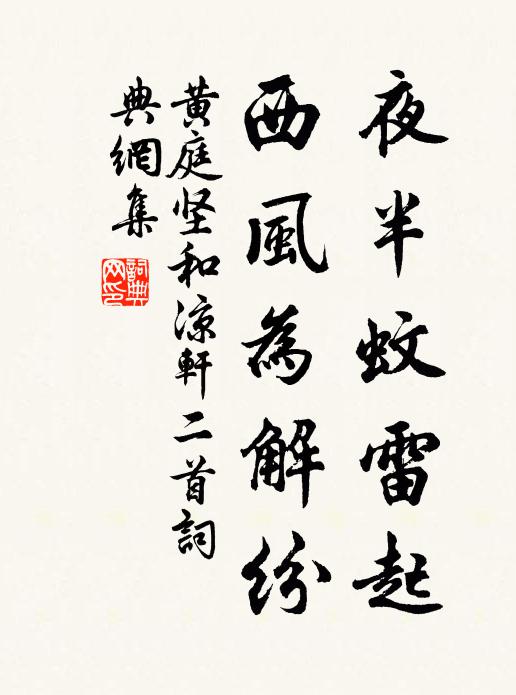 夜半蚊雷起
西風為解紛
黃庭坚和凉軒二首詞
典網集
詞典網印